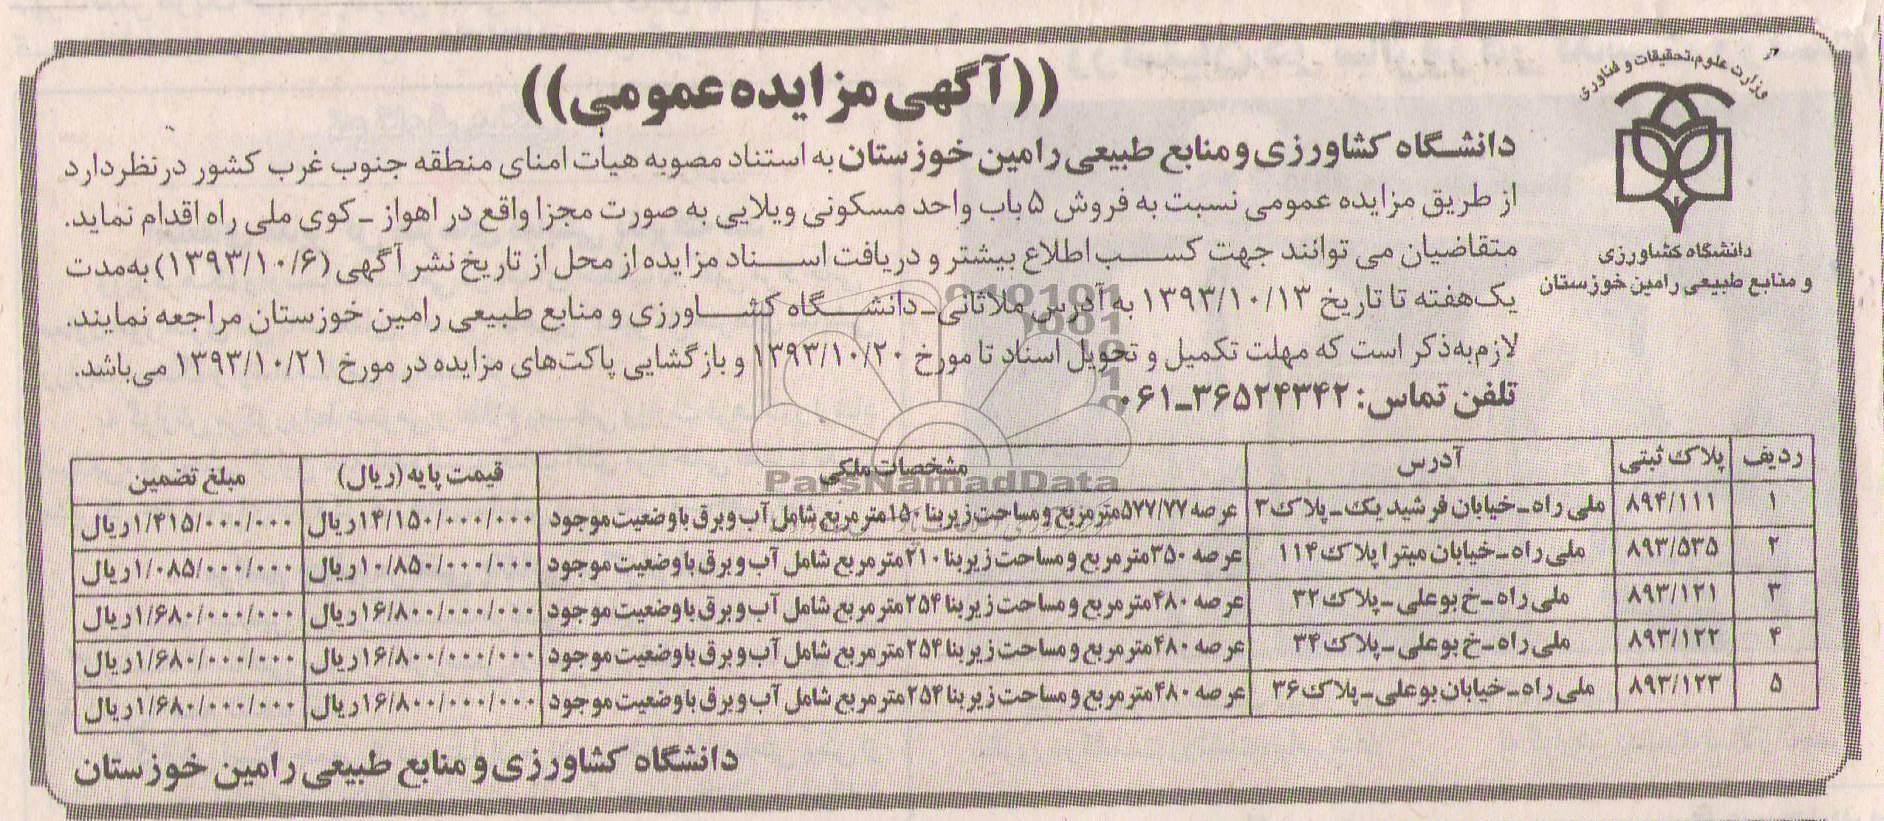 ((آگهی مزایده عمومی))
وزارت علوم،تحقیقات و فناوری
دانشگاه کشاورزی
و منابع طبیعی رامین خوزستان
دانشگاه کشاورزی و منابع طبیعی رامین خوزستان به استناد مصوبه هیات امنای منطقه جنوب غرب کشور درنظر دارد
از طریق مزایده عمومی نسبت به فروش ۵ باب واحد مسکونی ویلایی به صورت مجزا واقع در اهواز ـ کوی ملی راه اقدام نماید.
متقاضیان می توانند جهت کسب اطلاع بیشتر و دریافت اسناد مزایده از محل از تاریخ نشر آگهی (۱۳۹۳/۱۰/۶) به‌مدت
یک‌هفته تا تاریخ ۱۳۹۳/۱۰/۱۳ به آدرس ملاثانی ـ دانشگاه کشاورزی و منابع طبیعی رامین خوزستان مراجعه نمایند.
لازم‌به‌ذکر است که مهلت تکمیل و تحویل اسناد تا مورخ ۱۳۹۳/۱۰/۲۰ و بازگشایی پاکت‌های مزایده در مورخ ۱۳۹۳/۱۰/۲۱ می‌باشد.
تلفن تماس: ۳۶۵۲۴۳۴۲ـ۰۶۱
ParsNamadData
ردیف پلاک ثبتی آدرس مشخصات ملکی قیمت پایه (ریال) مبلغ تضمین
۱ ۸۹۴/۱۱۱ ملی راه ـ خیابان فرشید یک ـ پلاک ۳ عرصه ۵۷۷/۷۷ مترمربع و مساحت زیربنا ۱۵۰ مترمربع شامل آب و برق با وضعیت موجود ۱۴/۱۵۰/۰۰۰/۰۰۰ ریال ۱/۴۱۵/۰۰۰/۰۰۰ ریال
۲ ۸۹۳/۵۳۵ ملی راه ـ خیابان میترا پلاک ۱۱۴ عرصه ۳۵۰ مترمربع و مساحت زیربنا ۲۱۰ مترمربع شامل آب و برق با وضعیت موجود ۱۰/۸۵۰/۰۰۰/۰۰۰ ریال ۱/۰۸۵/۰۰۰/۰۰۰ ریال
۳ ۸۹۳/۱۲۱ ملی راه ـ خ بوعلی ـ پلاک ۳۲ عرصه ۴۸۰ مترمربع و مساحت زیربنا ۲۵۴ مترمربع شامل آب و برق با وضعیت موجود ۱۶/۸۰۰/۰۰۰/۰۰۰ ریال ۱/۶۸۰/۰۰۰/۰۰۰ ریال
۴ ۸۹۳/۱۲۲ ملی راه ـ خ بوعلی ـ پلاک ۳۴ عرصه ۴۸۰ مترمربع و مساحت زیربنا ۲۵۴ مترمربع شامل آب و برق با وضعیت موجود ۱۶/۸۰۰/۰۰۰/۰۰۰ ریال ۱/۶۸۰/۰۰۰/۰۰۰ ریال
۵ ۸۹۳/۱۲۳ ملی راه ـ خیابان بوعلی ـ پلاک ۳۶ عرصه ۴۸۰ مترمربع و مساحت زیربنا ۲۵۴ مترمربع شامل آب و برق با وضعیت موجود ۱۶/۸۰۰/۰۰۰/۰۰۰ ریال ۱/۶۸۰/۰۰۰/۰۰۰ ریال
دانشگاه کشاورزی و منابع طبیعی رامین خوزستان